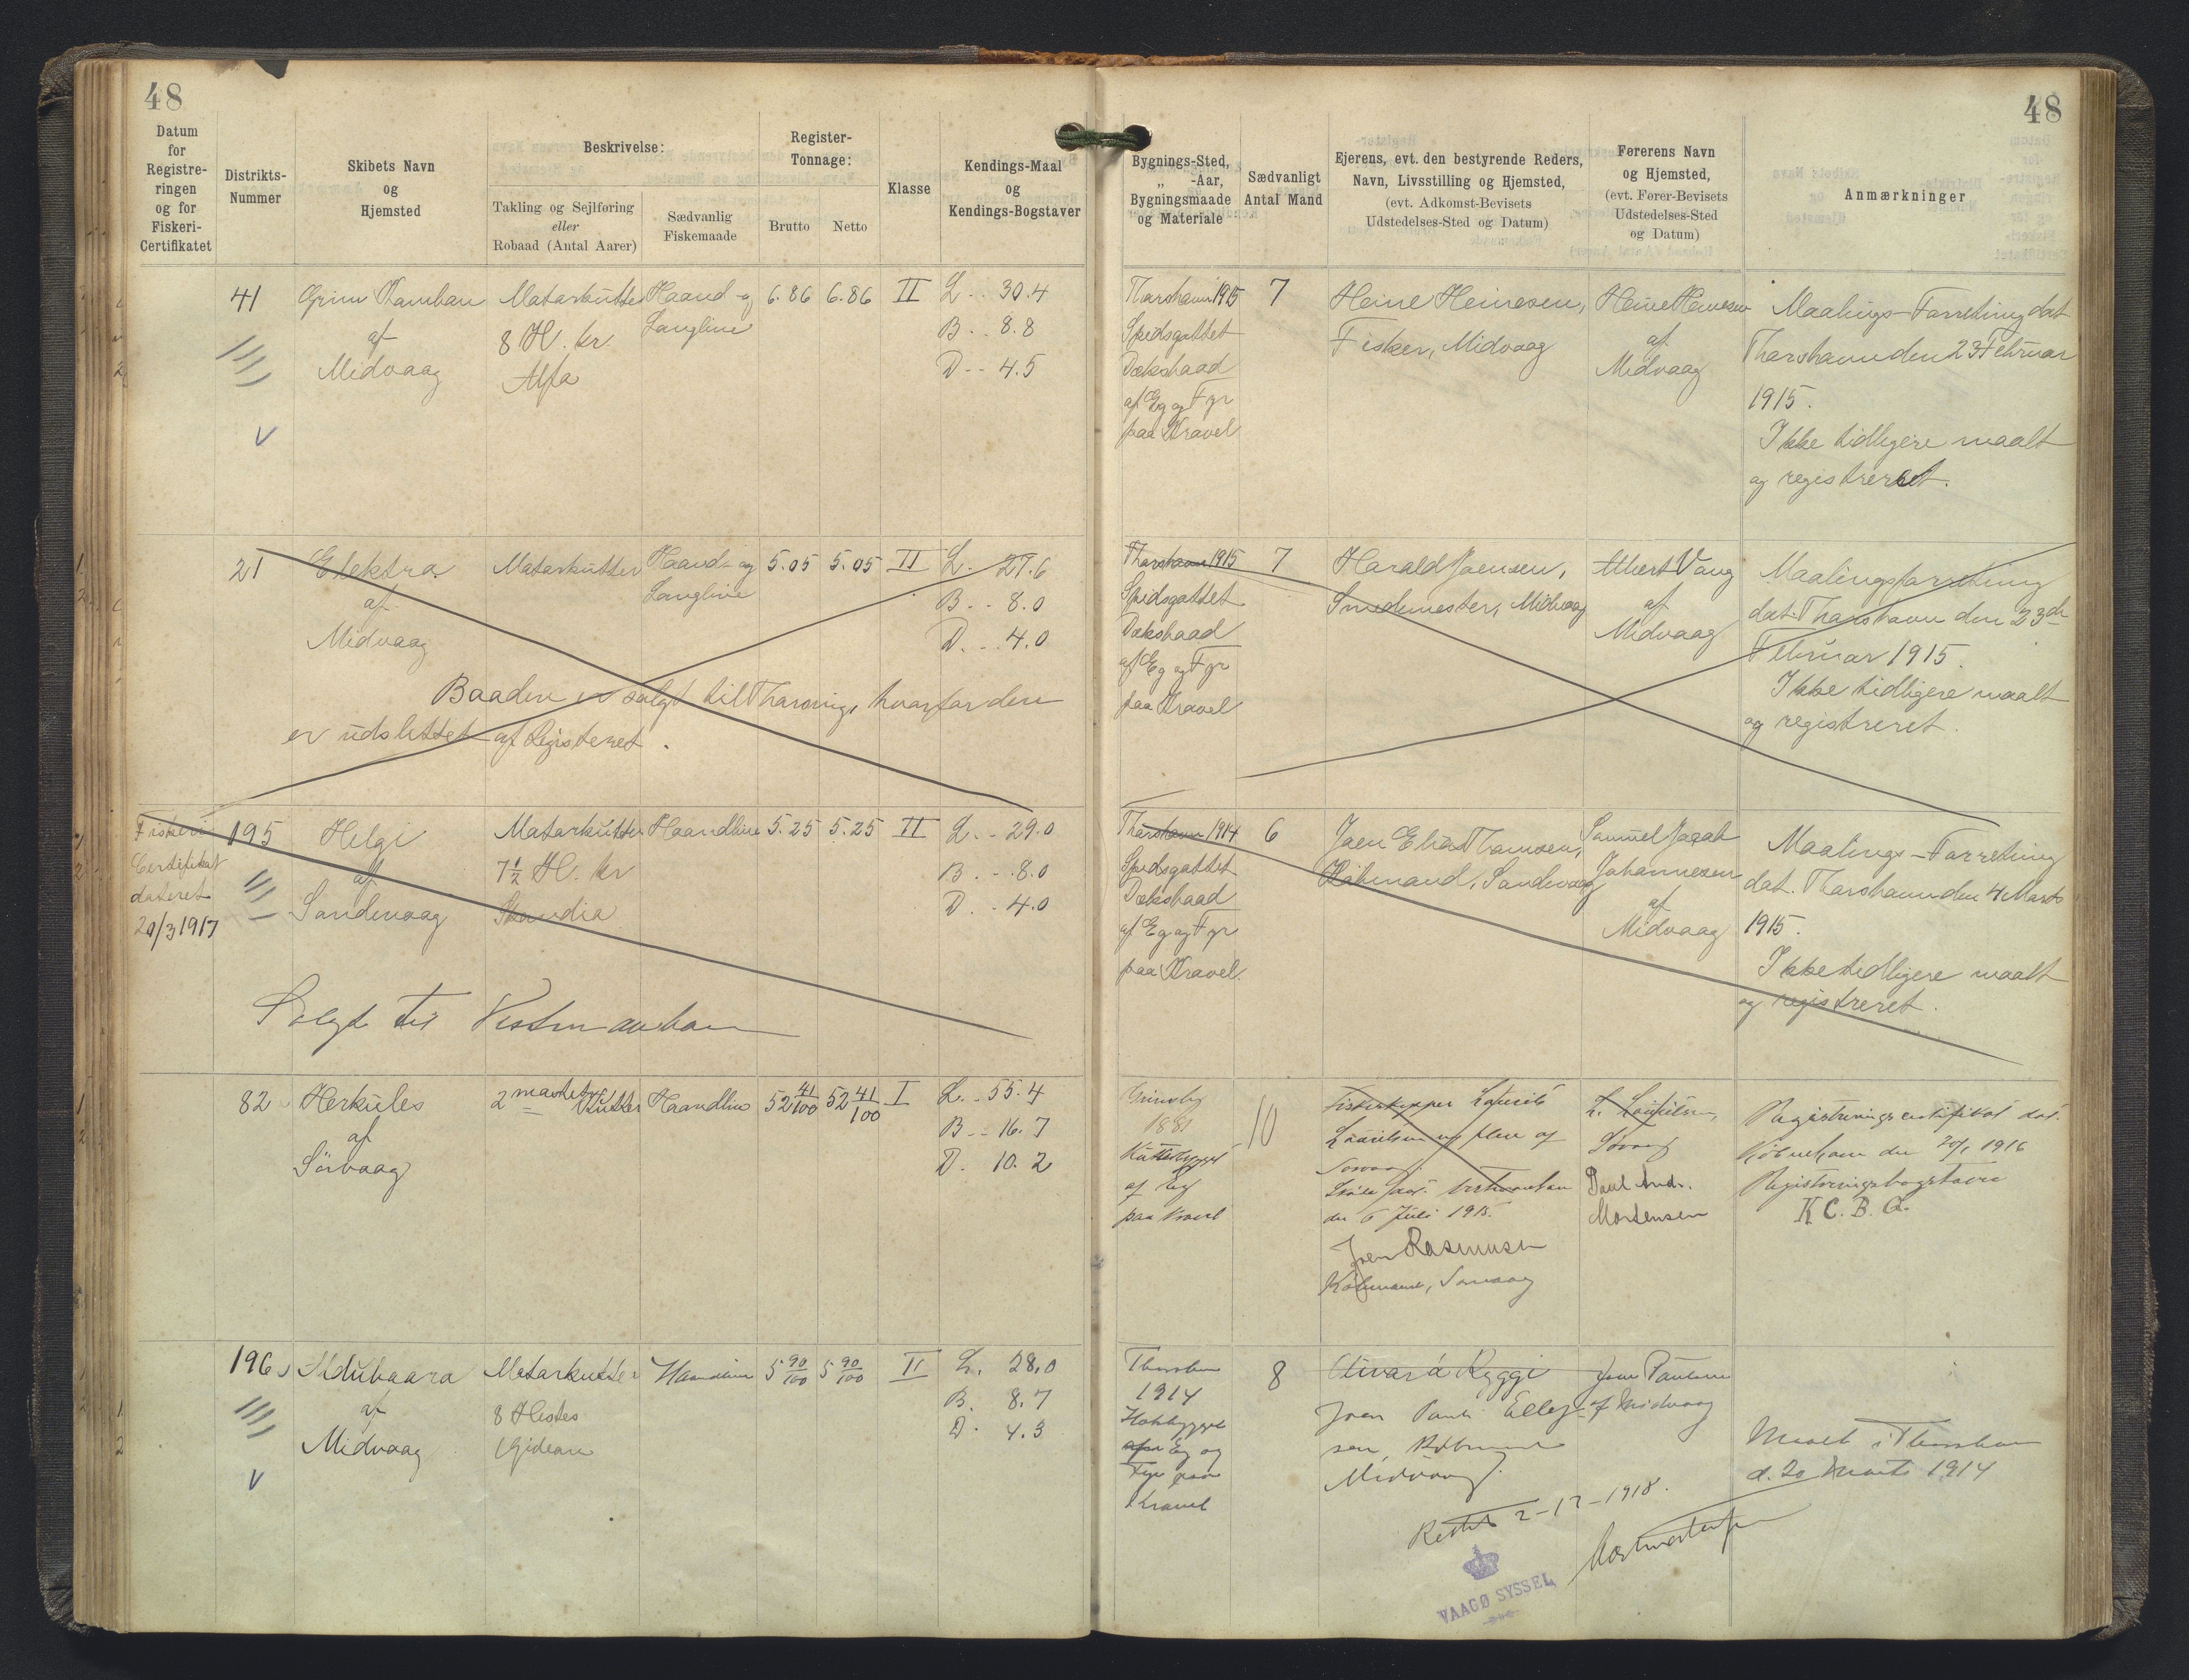 48
48
Datum
for
Registre-
ringen
og for
Fiskeri-
Certifikatet
Distrikts-
Nummer
Skibets Navn
og
Hjemsted
Beskrivelse:
Takling og Sejlføring
eller
Robaad (Antal Aarer)
Sædvanlig
Fiskemaade
Register-
Tonnage:
Brutto
Netto
Klasse
Kendings-Maal
og
Kendings-Bogstaver
Bygnings-Sted,
„ -Aar,
Bygningsmaade
og Materiale
Sædvanligt
Antal Mand
Ejerens, evt. den bestyrende Reders,
Navn, Livsstilling og Hjemsted,
(evt. Adkomst-Bevisets
Udstedelses-Sted og Datum)
Førerens Navn
og Hjemsted,
(evt. Fører-Bevisets
Udstedelses-Sted
og Datum)
Anmærkninger
41
Grim Kamban
af
Midvaag
Motorkutter
8 H. kr
Alfa
Haand- og
Langline
6.86
6.86
II
L. . 30.4
B. . 8.8
D. . 4.5
Thorshavn 1915
Spidsgattet
Dæksbaad
af Eg og Fyr
paa Kravel
7
Heine Heinesen,
Fisker, Midvaag
Heine Heinesen
af
Midvaag
Maalings-Forretning dat
Thorshavn den 23 Februar
1915.
Ikke tidligere maalt
og registreret.
21
Elektra
af
Midvaag
Motorkutter
Haand- og
Langline
5.05
5.05
II
L. 27.6
B. . 8.0
D. . 4.0
Baaden er solgt til Thorsvig, hvorfor den
er udslettet af Registeret.
Thorshavn 1915
Spidsgattet
Dæksbaad
af Eg og Fyr
paa Kravel
7
Harald Joensen,
Smedemester, Midvaag
Albert Vang
af
Midvaag
Maalingsforretning
dat. Thorshavn den 23de
Februar 1915.
Ikke tidligere maalt
og registreret.
Fiskeri
Certifikat
dateret
20/3 1917
195
Helgi
af
Sandevaag
Motorkutter
7½ H. kr
Skandia
Haandline
5.25
5.25
II
L. . 29.0
B. . 8.0
D. . 4.0
Solgt til Vestmanhavn
Thorshavn 1914
Spidsgattet
Dæksbaad
af Eg og Fyr
paa Kravel.
6
Joen Elias Thomsen,
Købmand, Sandevaag
Samuel Jacob
Johannesen
af
Midvaag
Maalings-Forretning
dat. Thorshavn den 4 Marts
1915.
Ikke tidligere maalt
og registreret.
82
Herkules
af
Sörvaag
2 mastet
Kutter
Haandline
52 41/100
52 41/100
I
L. . 55.4
B. . 16.7
D. 10.2
Grimsby
1881
Kutterbygget
af Eg
paa Kravel
10
Fiskeskipper Laurits
Lauritsen og flere af
Sørvaag.
Skøde dat. Vestmanhavn
den 6 Juli 1915.
Joen Rasmussen
Købmand, Sørvaag
L. Lauritsen,
Sørvaag
Poul And.
Mortensen
Registreringscertifikat dat.
København den 20/1 1916
Registreringsbogstaver
K C. B. G.
196
af
Midvaag
Motorkutter
8 Hestes
Gideon
Haandline
5 90/100
5 90/100
II
L. 28.0
B. 8.7
D. 4.3
Thorshavn
1914
Eg og
Fyr paa
Kravel
8
Olivar á Ryggi
Joen Pauli Ellef-
sen, Købmand
Midvaag.
Joen Paulsen
af Midvaag
Maalt i Thorshavn
d. 20 Marts 1914
Rettet 2-12-1918.
VAAGØ SYSSEL